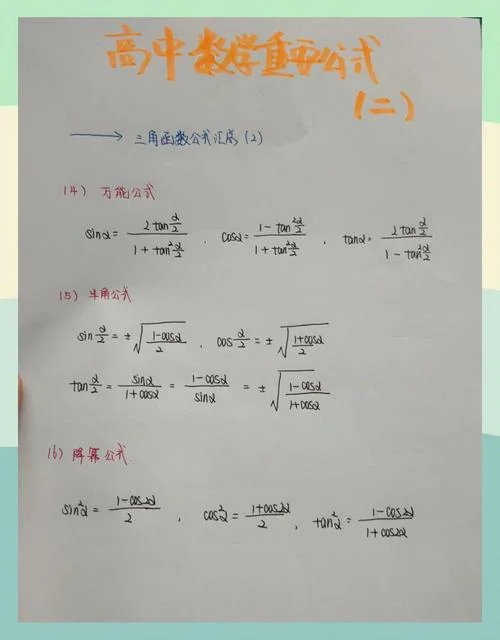 高中数学重要公式
(二)
→ 三角函数公式汇总(2)
(4) 万能公式
sinα = 2tan α/2 / 1 + tan² α/2 , cosα = 1 - tan² α/2 / 1 + tan² α/2 , tanα = 2tan α/2 / 1 - tan² α/2
(5) 半角公式
sin α/2 = ± √(1-cosα / 2) , cos α/2 = ± √(1+cosα / 2)
tan α/2 = sinα / 1+cosα = 1-cosα / sinα = ± √(1-cosα / 1+cosα)
(6) 降幂公式
sin²α = 1-cos2α / 2 , cos²α = 1+cos2α / 2 , tan²α = 1-cos2α / 1+cos2α